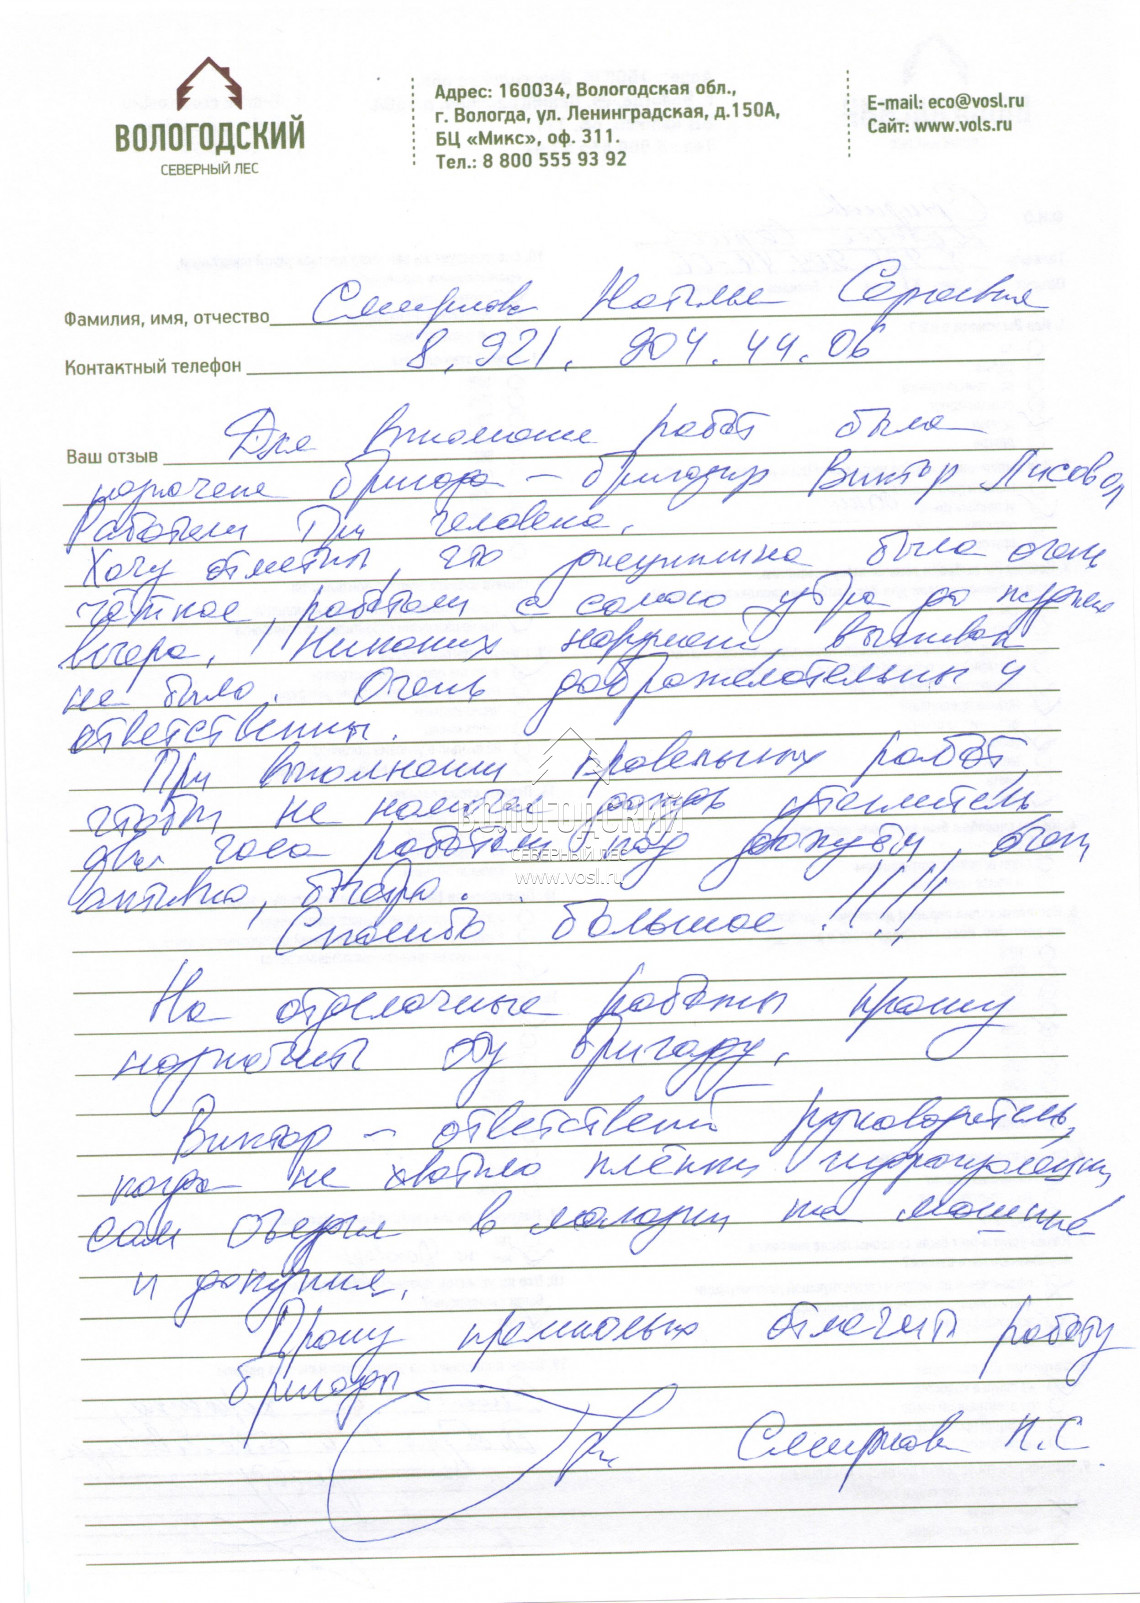 ВОЛОГОДСКИЙ
СЕВЕРНЫЙ ЛЕС
Адрес: 160034, Вологодская обл.,
г. Вологда, ул. Ленинградская, д.150А,
БЦ «Микс», оф. 311.
Тел.: 8 800 555 93 92
E-mail: eco@vosl.ru
Сайт: www.vols.ru
Фамилия, имя, отчество Смирнова Наталья Сергеевна
Контактный телефон 8.921.904.44.06
Ваш отзыв Для выполнения работ была
назначена бригада – бригадир Виктор Лисовой
Работали три человека.
Хочу отметить, что дисциплина была очень
чёткая, работали с самого утра до позднего
вечера. Никаких нарушений, выпивок
не было. Очень доброжелательны и
ответственны.
При выполнении кровельных работ,
чтобы не намочил дождь утеплитель
два часа работали под дождём, очень
активно, быстро.
Спасибо большое!!!!!
ВОЛОГОДСКИЙ
СЕВЕРНЫЙ ЛЕС
www.vosl.ru
На отделочные работы прошу
назначить эту бригаду.
Виктор – ответственный руководитель,
когда не хватило плёнки гидроизоляции,
сам съездил в магазин на машине
и докупил.
Прошу премиально отмечать работу
бригады
Смирнова Н.С.